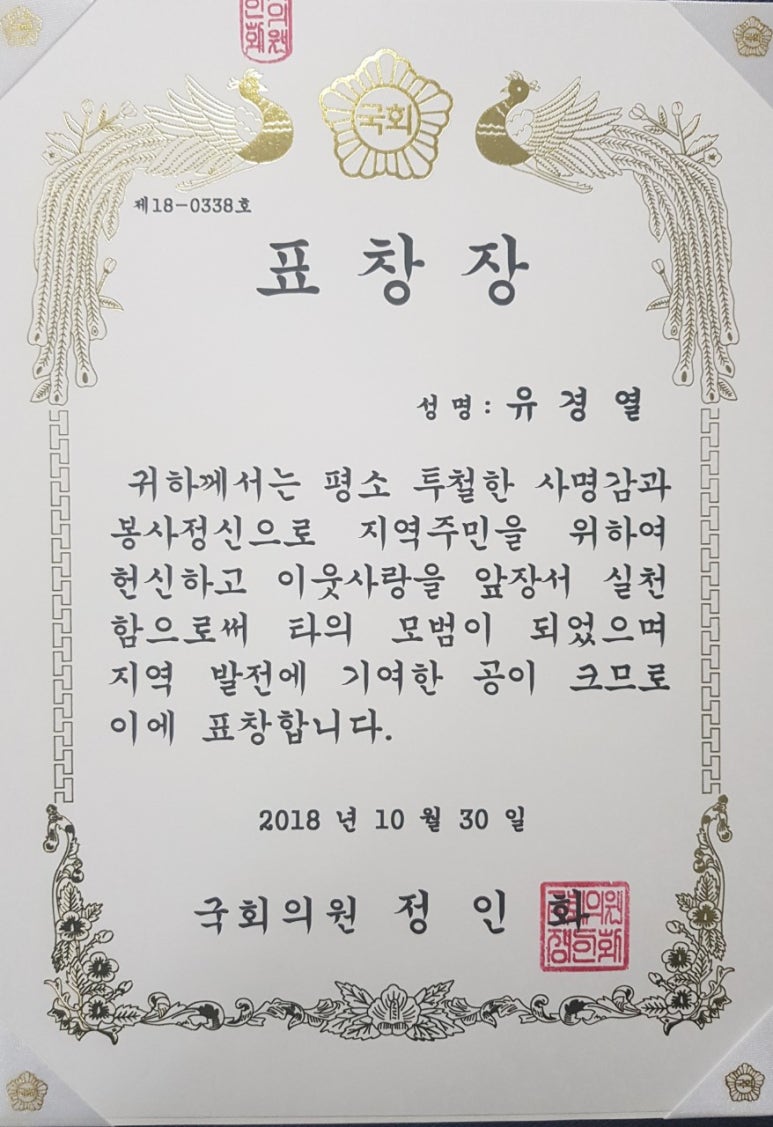 국회
제18-0338호
표 창 장
성 명 : 유 경 열
귀하께서는 평소 투철한 사명감과
봉사정신으로 지역주민을 위하여
헌신하고 이웃사랑을 앞장서 실천
함으로써 타의 모범이 되었으며
지역 발전에 기여한 공이 크므로
이에 표창합니다.
2018 년 10 월 30 일
국회의원 정 인 화